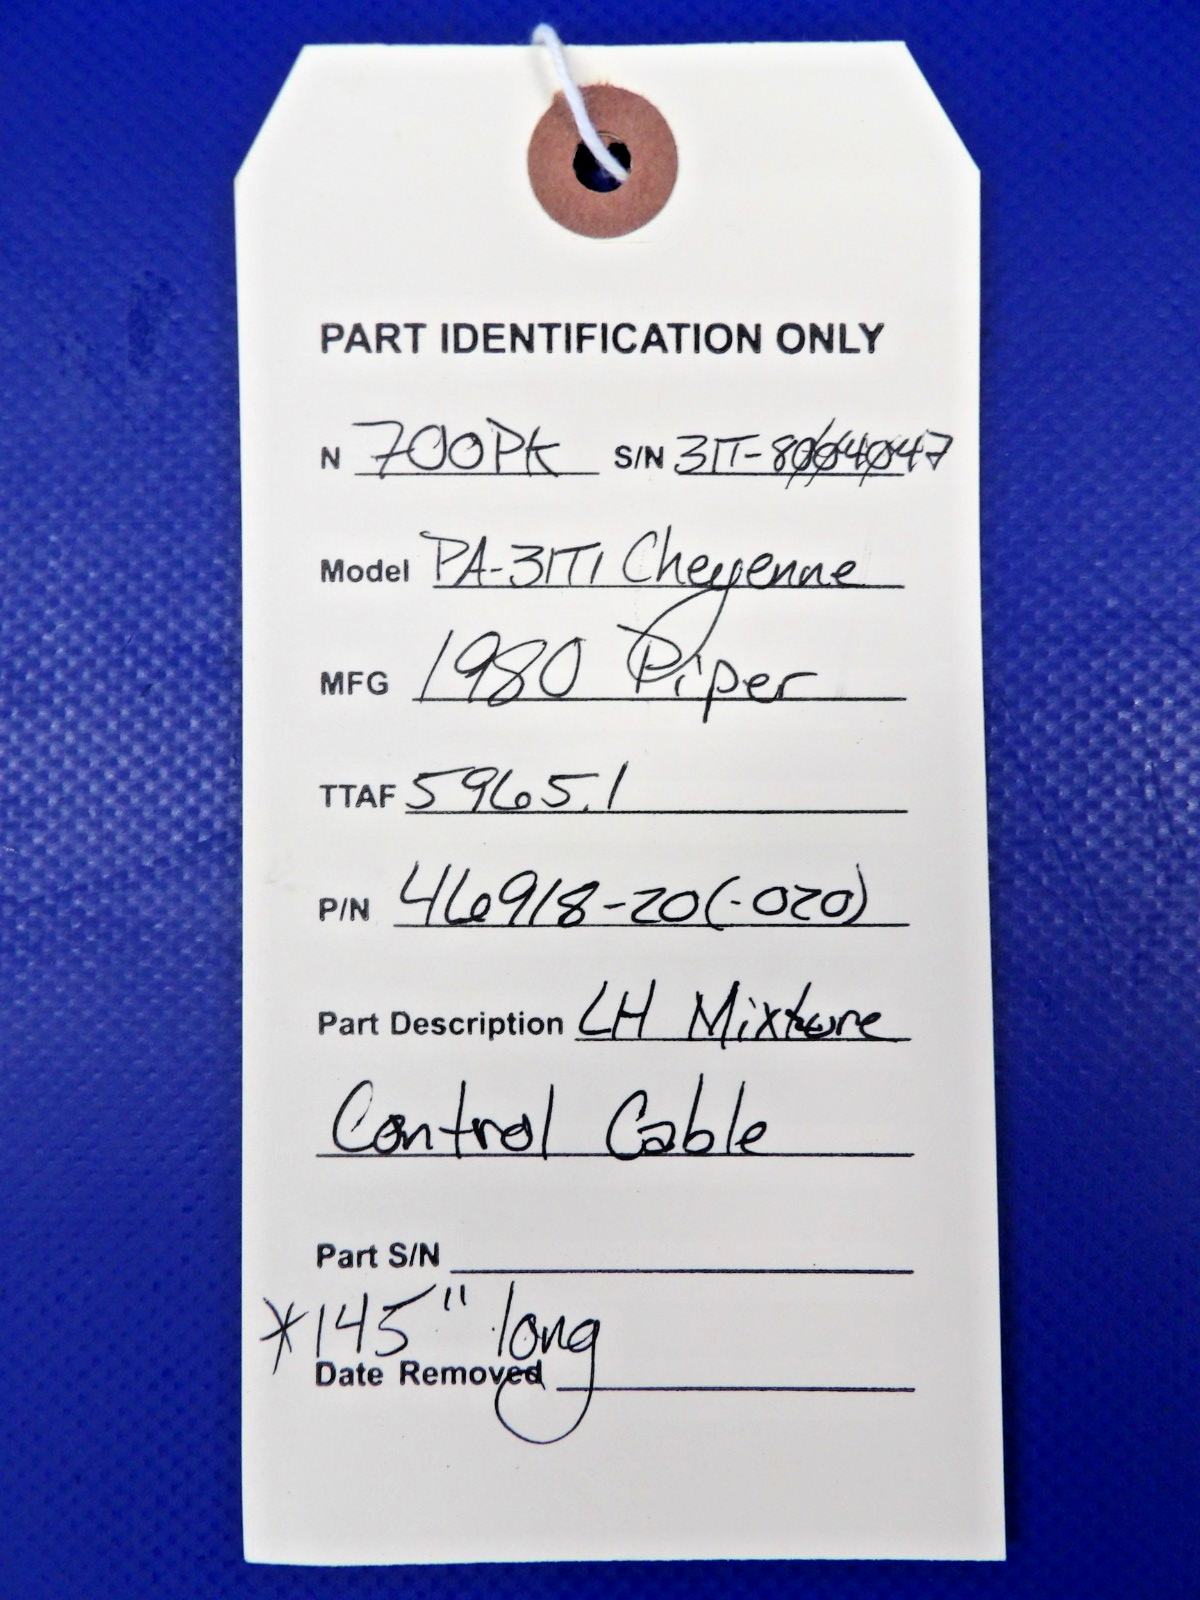 PART IDENTIFICATION ONLY
N 700PK S/N 31T-8004047
Model PA-31T1 Cheyenne
MFG 1980 Piper
TTAF 5965.1
P/N 46918-20(-020)
Part Description LH Mixture
Control Cable
Part S/N
*145" long
Date Removed